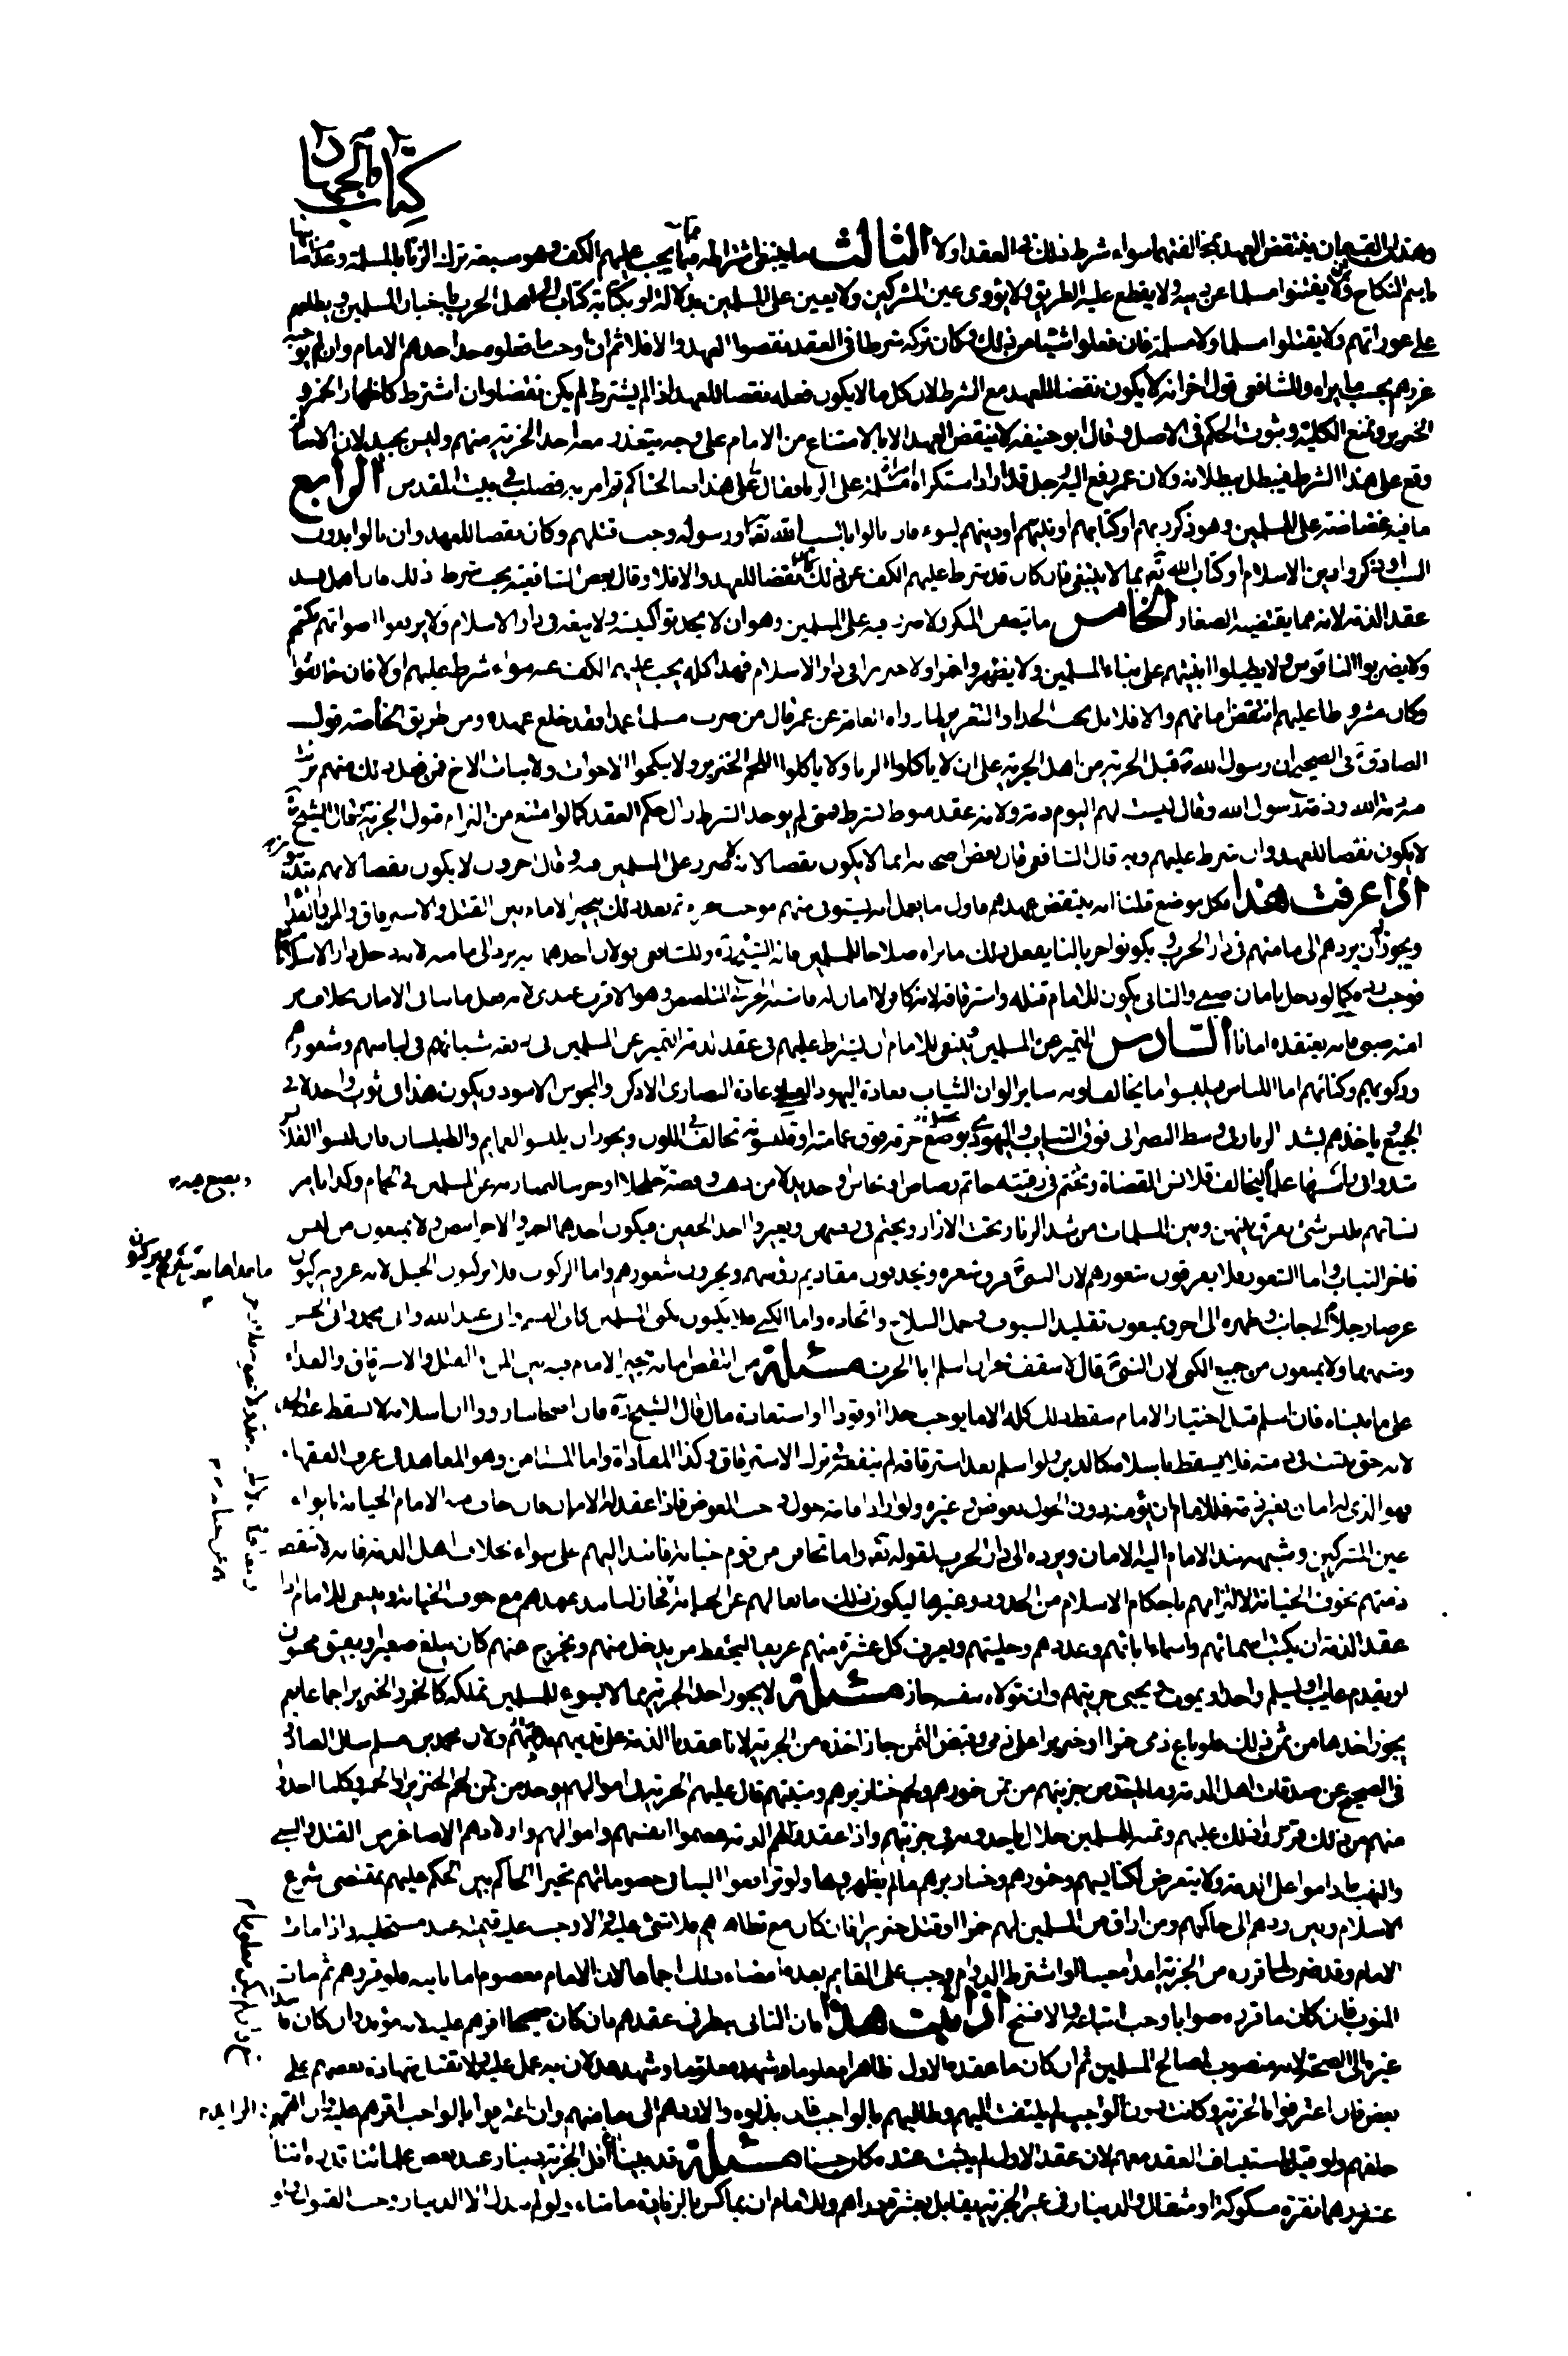 كتاب الجهاد
وهذان القسمان ينتقض العهد بمخالفتهما سواء شرط ذلك في العقد او لا الثالث ما ينبغي اشتراطه فيما يجب عليهم الكف وهو سبعة ترك الزنا بالمسلمة وعدم اصابتها
باسم النكاح ولا يفتنوا مسلما عن دينه ولا يقطع عليه الطريق ولا يؤوى عين المشركين ولا يعين على المسلمين بدلالة او بكتابة كتاب الى اهل الحرب باخبار المسلمين ويطلعهم
على عوراتهم ولا يقتلوا مسلما ولا مسلمة فان فعلوا شيئا من ذلك وكان تركه شرطا في العقد نقضوا العهد والا فلا ثم ان اوجب ما فعلوه حدا حدهم الامام وان لم يوجبه
عزرهم بحسب ما يراه وللشافعي قول اخر انه لا يكون نقضا للعهد مع الشرط لان كل ما لا يكون فعله نقضا للعهد اذا لم يشترط لم يكن نقضا وان اشترط كاظهار الخمر و
الخنزير ونمنع الكلية وثبوت الحكم في الاصل وقال ابو حنيفة لا ينتقض العهد الا بالامتناع من الامام على وجه يتعذر معه اخذ الجزية منهم وليس بجيد لان الامان
وقع على هذا الشرط فيبطل ببطلانه ولان عمر رفع اليه رجل قد اراد استكراه امرأة مسلمة على الزنا فقال ما على هذا صالحناكم فامر به فصلب في بيت المقدس الرابع
ما فيه غضاضة على المسلمين وهو ذكر ربهم او كتابهم او نبيهم او دينهم بسوء فان نالوا بالسب الله تعالى او رسوله وجب قتلهم وكان نقضا للعهد وان نالوا بدون
السب او ذكروا دين الاسلام او كتاب الله تعالى بما لا ينبغي فان كان قد شرط عليهم الكف عن ذلك كان نقضا للعهد والا فلا وقال بعض الشافعية يجب شرط ذلك فان اهمل فسد
عقد الذمة لانه مما يقتضيه الصغار الخامس ما يتضمن المنكر ولا ضرر فيه على المسلمين وهو ان لا يحدثوا كنيسة ولا بيعة في دار الاسلام ولا يرفعوا اصواتهم بكتبهم
ولا يضربوا الناقوس ولا يطيلوا ابنيتهم على بناء المسلمين ولا يظهروا خمرا ولا خنزيرا في دار الاسلام فهذا كله يجب عليهم الكف عنه سواء شرط عليهم او لا فان خالفوا
وكان مشروطا عليهم انتقض امانهم والا فلا بل يجب الحد او التعزير لما رواه العامة عن عمر قال من ضرب مسلما عمدا فقد خلع عهده ومن طريق الخاصة قول
الصادق في الصحيح ان رسول الله قبل الجزية من اهل الجزية على ان لا ياكلوا الربا ولا ياكلوا لحم الخنزير ولا ينكحوا الاخوات ولا بنات الاخ فمن فعل ذلك منهم برئت
منه ذمة الله وذمة رسول الله وقال ليست لهم اليوم ذمة ولانه عقد منوط بشرط فمتى لم يوجد الشرط زال حكم العقد كما لو امتنع من التزام قبول الجزية وقال الشيخ
لا يكون نقضا للعهد وان شرط عليهم وبه قال الشافعي
اذا عرفت هذا فكل موضع قلنا انه ينتقض عهدهم فاول ما يعمل انه يستوفى منهم موجب الجرم ثم بعد ذلك يتخير الامام بين القتل والاسترقاق والمن والفداء
ويجوز ان يردهم الى مامنهم في دار الحرب ويكونوا حربا لنا يفعل من ذلك ما يراه صلاحا للمسلمين قاله الشيخ وللشافعي قولان احدهما يرد الى مامنه لانه دخل دار الاسلام بامان
فوجب رده كما لو دخل بامان صبي والثاني يكون للامام قتله واسترقاقه لانه كافر لا امان له وهو الاقرب عندي لانه فعل ما ينافي الامان بخلاف من
امنه صبي فانه يعتقده امانا السادس التميز عن المسلمين وينبغي للامام ان يشترط عليهم في عقد الذمة التميز عن المسلمين في اربعة اشياء في لباسهم وشعورهم
وركوبهم وكناهم اما اللباس فيلبسوا ما يخالف لونه سائر الوان الثياب فعادة اليهود العسلي وعادة النصارى الادكن والمجوس الاسود ويكون هذا في ثوب واحد لا في
الجميع وياخذهم بشد الزنار في وسط النصراني فوق الثياب واليهودي بوضع خرقة فوق عمامته او قلنسوته تخالف في اللون ويجوز ان يلبسوا العمائم والطيلسان فان لبسوا القلانس
شدوا في راسها علما ليخالف قلانس القضاة ويختم في رقبته خاتم رصاص او نحاس او حديد لا من ذهب وفضة او جرسا ليمتاز به عن المسلمين في الحمام وكذا يامر
نسائهم بلبس شيء يفرق بينهن وبين المسلمات من شد الزنار تحت الازار ويختم في رقبتهن ويغير احد الخفين فيكون احدهما احمر والاخر ابيض ولا يمنعون من لبس
فاخر الثياب واما الشعور فلا يفرقون شعورهم لان النبي فرق شعره ويجذون مقاديم رؤسهم ويجزون شعورهم واما الركوب فلا يركبون الخيل لانه عز ويركبون
عرضا رجلاه الى جانب وظهره الى اخر ويمنعون تقليد السيوف وحمل السلاح واتخاذه واما الكنى فلا يكنون بكنى المسلمين كابي القاسم وابي عبد الله وابي محمد وابي الحسن
وشبهها ولا يمنعون من جميع الكنى لان النبي قال لاسقف نجران اسلم ابا الحرث مسئلة من انتقض امانه تخير الامام فيه بين المن والقتل والاسترقاق والفداء
على ما بيناه فان اسلم قبل اختيار الامام سقط ذلك كله الا ما يوجب حدا او قودا او استعادة مال قال الشيخ فان اصحابنا رووا ان اسلامه لا يسقط عنه الحد
لانه حق يثبت في ذمته فلا يسقط باسلامه كالدين ولو اسلم بعد استرقاقه لم ينفعه في ترك الاسترقاق وكذا المفاداة واما المستامن وهو المعاهد في عرف الفقهاء
فهو الذي له امان بغير ذمة فللامام ان يؤمنه دون الحول بعوض وغيره ولو اراد اقامة حول وجب العوض فاذا عقد له الامان فان خاف منه الامام الخيانة بايواء
عين المشركين وشبهه نبذ الامام اليه الامان ويرده الى دار الحرب لقوله تعالى واما تخافن من قوم خيانة فانبذ اليهم على سواء بخلاف اهل الذمة فانه لا تنتقض
ذمتهم بخوف الخيانة لالتزامهم باحكام الاسلام من الحدود وغيرها فيكون ذلك مانعا لهم عن الخيانة فجاز لنا نبذ عهدهم مع خوف الخيانة وينبغي للامام اذا
عقد الذمة ان يكتب اسمائهم واسماء ابائهم وعددهم وحليتهم ويعرف كل عشرة منهم عريفا ليحفظ من يدخل منهم ويخرج عنهم كان يبلغ صغير او يفيق مجنون
او يقدم غائب او يسلم واحد او يموت ويجبي جزيتهم وان تولاه بنفسه جاز مسئلة لا يجوز اخذ الجزية مما لا يسوغ للمسلمين تملكه كالخمر والخنزير اجماعا نعم
يجوز اخذها من ثمن ذلك فلو باع ذمي خمرا او خنزيرا على ذمي وقبض الثمن جاز اخذه من الجزية ولان محمد بن مسلم سال الصادق
في الصحيح عن صدقات اهل الذمة وما يؤخذ من جزيتهم من ثمن خمورهم ولحم خنازيرهم وميتتهم قال عليهم الجزية في اموالهم يؤخذ من ثمن لحم الخنزير او الخمر وكلما اخذوا
منهم من ذلك فوزر ذلك عليهم وثمنه للمسلمين حلال ياخذونه في جزيتهم واذا عقدوا لهم الذمة عصموا انفسهم واموالهم واولادهم الاصاغر من القتل والسبي
والنهب ما داموا على الذمة ولا يتعرض لكنايسهم وخمورهم وخنازيرهم ما لم يظهروها ولو ترافعوا الينا في خصوماتهم تخير الحاكم بين الحكم عليهم بمقتضى شرع
الاسلام وبين ردهم الى حاكمهم ومن اراق من المسلمين لهم خمرا او قتل خنزيرا فان كان مع تظاهرهم فلا شيء عليه والا وجب عليه قيمته عند مستحليه واذا مات
الامام وقد ضرب لما قرره من الجزية امدا معينا او اشترط الدوام وجب على القائم بعده امضاء ذلك اجماعا لان الامام معصوم اما نايبه فلو قررهم ثم مات
المنوب فان كان ما قرره صوابا وجب اتباعه والا فسخ اذا ثبت هذا فان الثاني ينظر في عقدهم فان كان صحيحا اقرهم عليه لانه مؤبد وان كان فاسدا
غيره الى الصحة لانه منصوب لمصالح المسلمين ثم ان كان ما عقده الاول ظاهرا معلوما او شهد به عدلان به عمل عليه ولا تقبل شهادة بعضهم على
بعض فان اعترفوا بالجزية وكانت دون الواجب لم يلتفت اليهم وطالبهم بالواجب فان بذلوه والا ردهم الى مامنهم وان اعترفوا بالواجب اقرهم عليه وان اتهمهم في الزايد
حلفهم ولو قيل يستانف العقد معهم لان عقد الاول لم يثبت عنده كان حسنا مسئلة قد بينا ان اقل الجزية دينار عند بعض علمائنا قدره اثنا
عشر درهما نقرة مسكوكة او مثقال والدينار في غير الجزية يقابل بعشرة دراهم وللامام ان يماكس بالزيادة ما شاء ولو لم يبذل الا الدينار وجب القبول